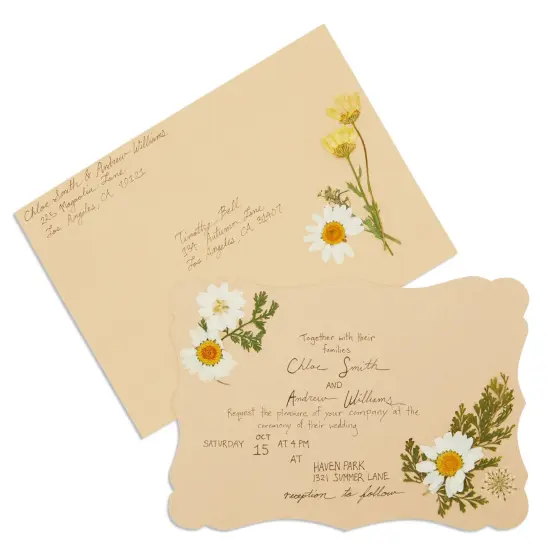 Chloe Smith & Andrew Williams
225 Magnolia Lane
Los Angeles, CA 90221
Timothy Bell
13A Autumn Lane
Los Angeles, CA 91407
Together with their
families
Chloe Smith
AND
Andrew Williams
Request the pleasure of your company at the
ceremony of their wedding
SATURDAY OCT 15 AT 4 PM
AT
HAVEN PARK
1321 SUMMER LANE
reception to follow